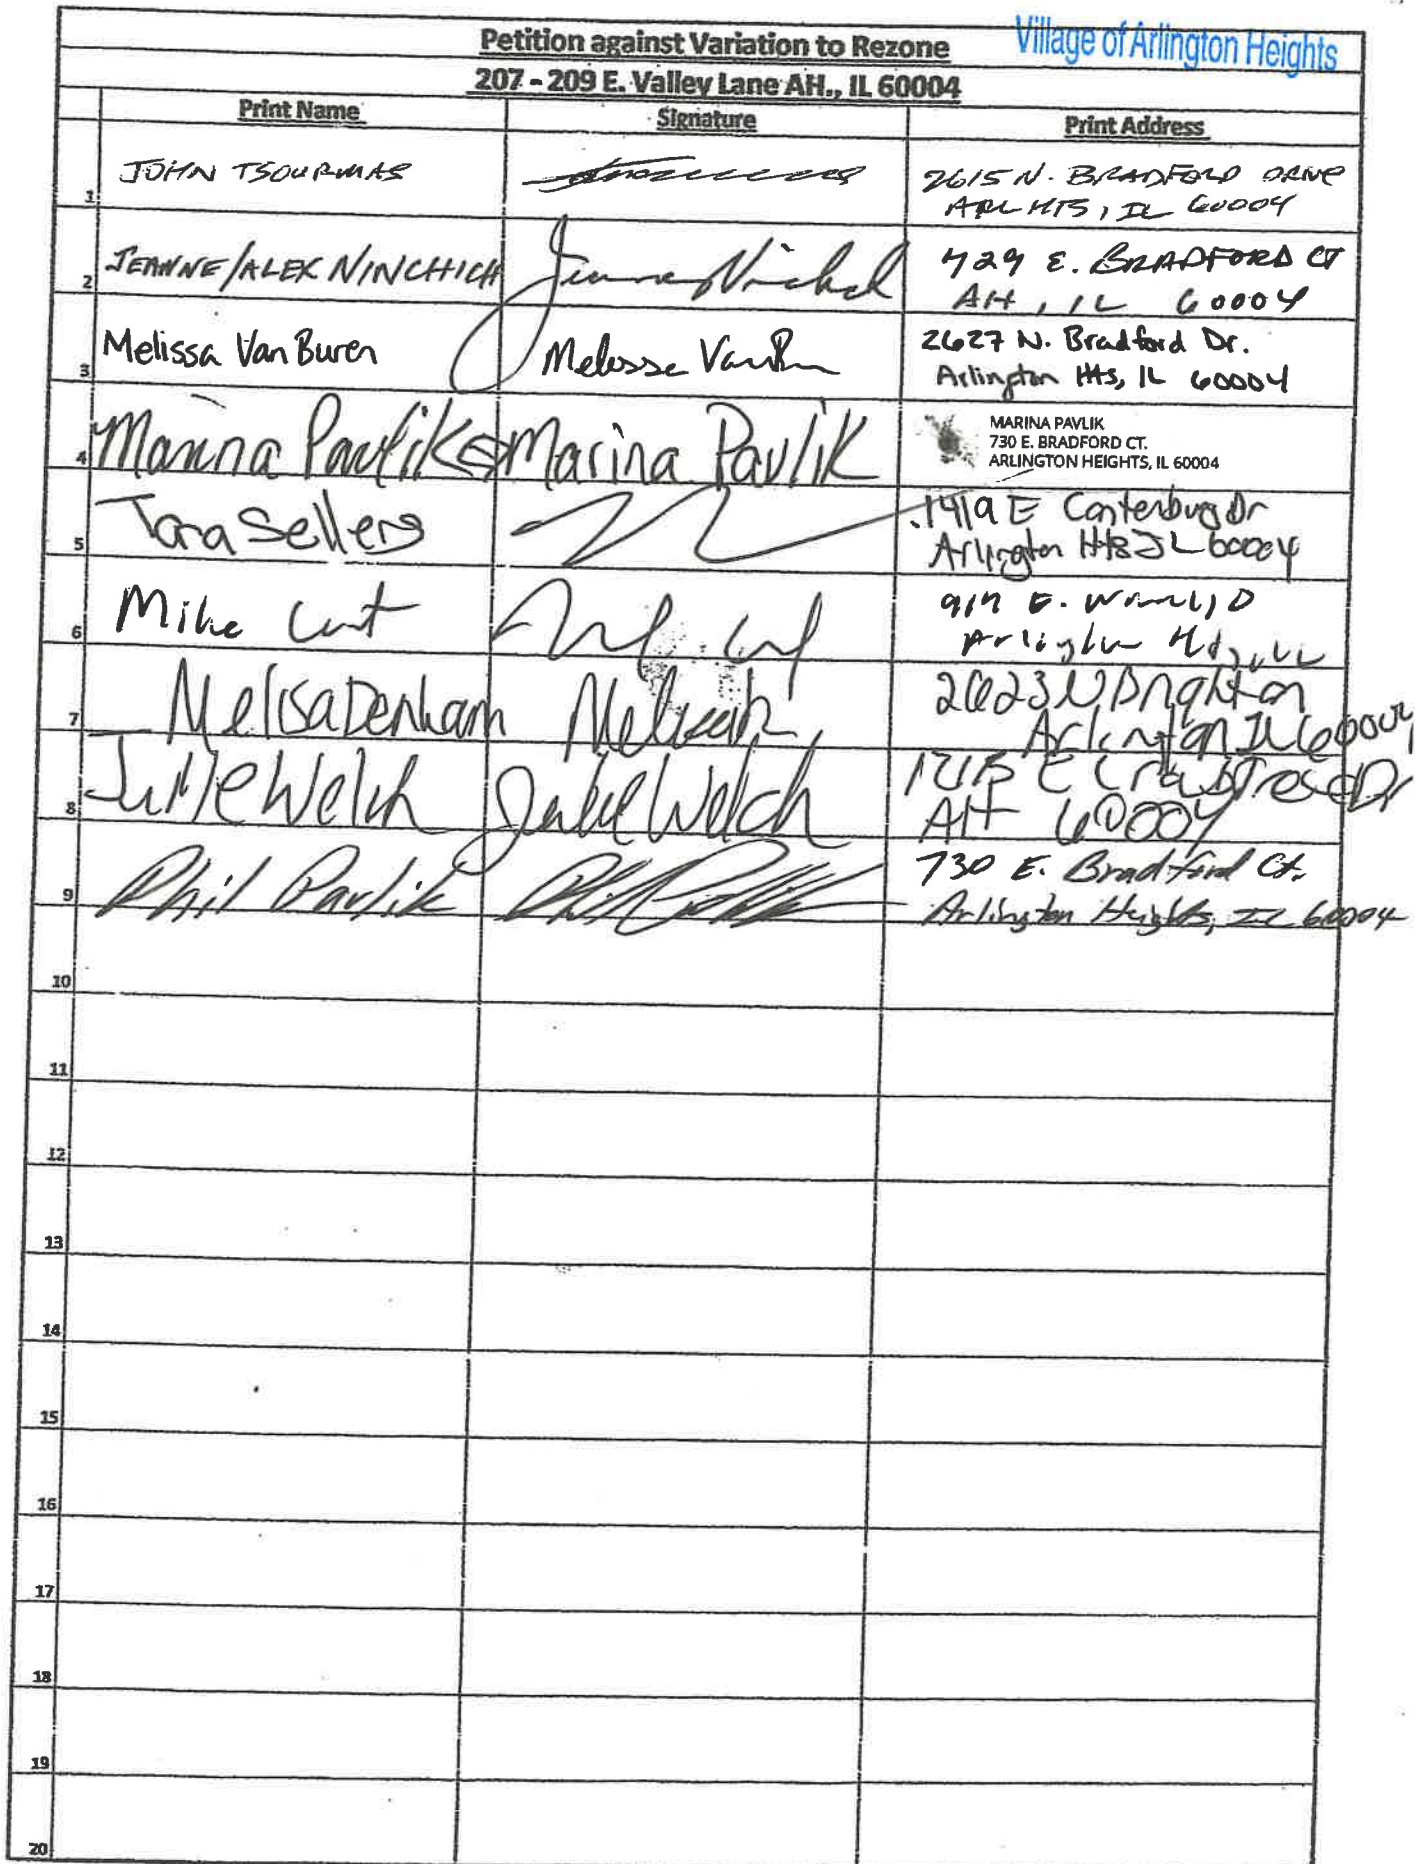 Village of Arlington Heights
Petition against Variation to Rezone
207 - 209 E. Valley Lane AH., IL 60004
Print Name Signature Print Address
1 JOHN TSOURMAS 2615 N. BRADFORD DRIVE
ARL HTS, IL 60004
2 JEANNE/ALEK NINCHICH Jeanne 729 E. BRADFORD CT
AH, IL 60004
3 Melissa Van Buren Melissa Van 2627 N. Bradford Dr.
Arlington Hts, IL 60004
4 Marina Pavlik Marina Pavlik MARINA PAVLIK
730 E. BRADFORD CT.
ARLINGTON HEIGHTS, IL 60004
5 Tara Sellers 1419 E Canterbury Dr
Arlington Hts IL 60004
6 Mike 917 E.
Arlington
7 Melisa Denham 2623 N Brighton
Arlington IL 60004
8 Julie Welch Julie Welch E Crabtree Dr
AH 60004
9 Phil Pavlik Phil Pavlik 730 E. Bradford Ct.
Arlington Heights, IL 60004
10
11
12
13
14
15
16
17
18
19
20